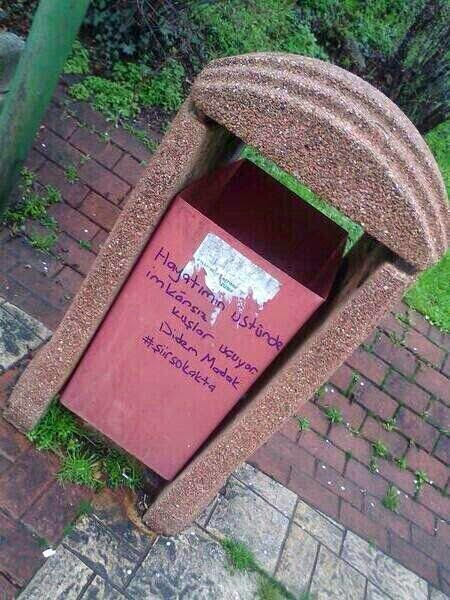 Hayatımın üstünde
imkansız
kuşlar uçuyor
Didem Madak
#şiirsokakta